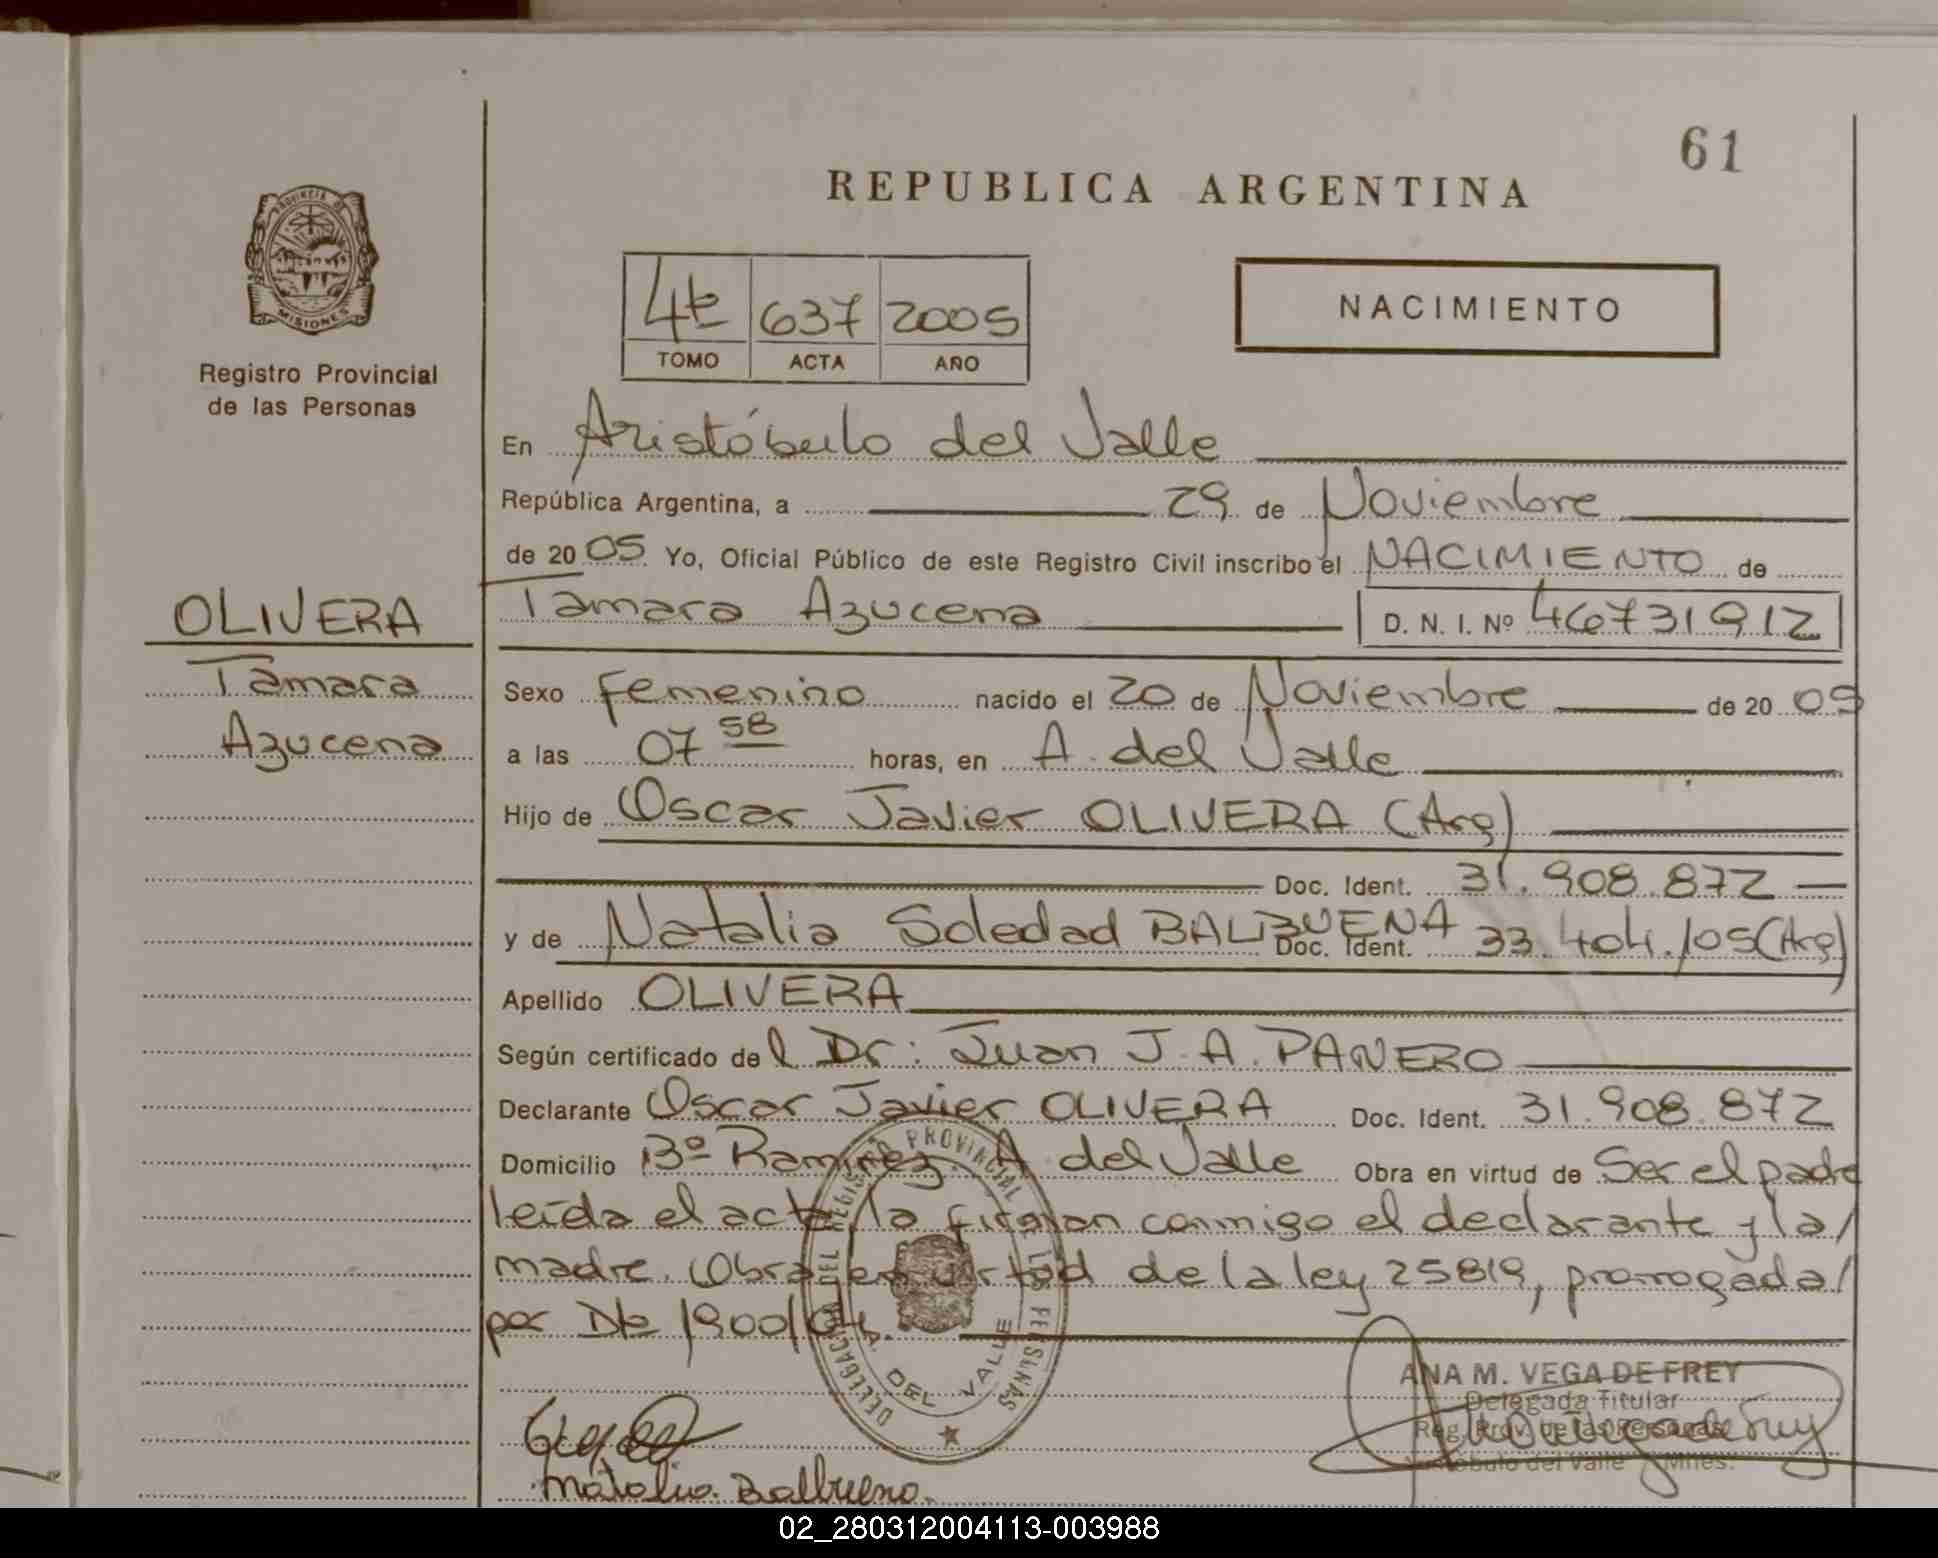 61
REPUBLICA ARGENTINA
PROVINCIA DE
MISIONES
Registro Provincial
de las Personas
4to 637 2005
TOMO ACTA AÑO
NACIMIENTO
En Aristóbulo del Valle
República Argentina, a 29 de Noviembre
de 2005 Yo, Oficial Público de este Registro Civil inscribo el NACIMIENTO de
Tamara Azucena D. N. I. Nº 46731912
OLIVERA
Tamara
Azucena
Sexo femenino nacido el 20 de Noviembre de 2005
a las 07 58 horas, en A. del Valle
Hijo de Oscar Javier OLIVERA (Arg)
Doc. Ident. 31.908.872
y de Natalia Soledad BALBUENA Doc. Ident. 33.404.105 (Arg)
Apellido OLIVERA
Según certificado del Dr: Juan J. A. PANERO
Declarante Oscar Javier OLIVERA Doc. Ident. 31.908.872
Domicilio Bº Ramirez. A del Valle Obra en virtud de Ser el padre
leída el acta, la firman conmigo el declarante y la/
madre. Obra en virtud de la ley 25819, prorrogada/
por Dto 1900/04.
DELEGACION DEL REGISTRO PROVINCIAL DE LAS PERSONAS
A. DEL VALLE
ANA M. VEGA DE FREY
Delegada Titular
Reg. Prov. de las Personas
Aristóbulo del Valle - Mnes.
Natalia. Balbuena.
02_280312004113-003988